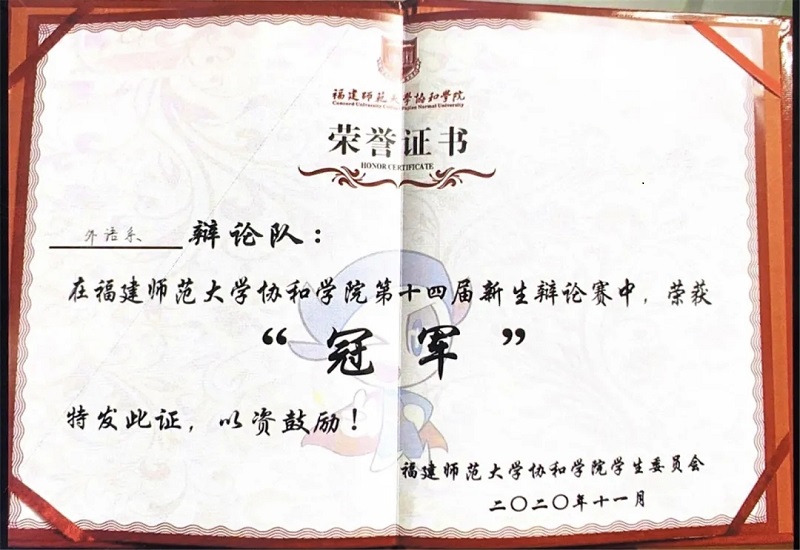 福建师范大学协和学院
Concord University College Fujian Normal University
荣誉证书
HONOR CERTIFICATE
外语系 辩论队：
在福建师范大学协和学院第十四届新生辩论赛中，荣获
“冠军”
特发此证，以资鼓励！
福建师范大学协和学院学生委员会
二〇二〇年十一月